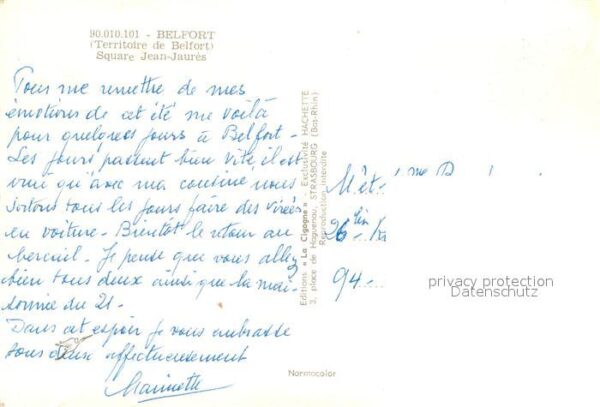 90.010.101 - BELFORT
(Territoire de Belfort)
Square Jean-Jaurès
Pour me remettre de mes
émotions de cet été me voilà
pour quelques jours à Belfort -
Les jours passent bien vite, il est
vrai qu'avec ma cousine nous
sortons tous les jours faire des virées
en voiture - Bientôt le retour au
bercail. Je pense que vous allez
bien tous deux ainsi que la mai-
sonnée du 21 -
Dans cet espoir je vous embrasse
tous deux affectueusement
Marinette
Editions « La Cigogne » - Exclusivité HACHETTE
3, place de Haguenau, STRASBOURG (Bas-Rhin)
Reproduction interdite
Normacolor
26
94
privacy protection
Datenschutz